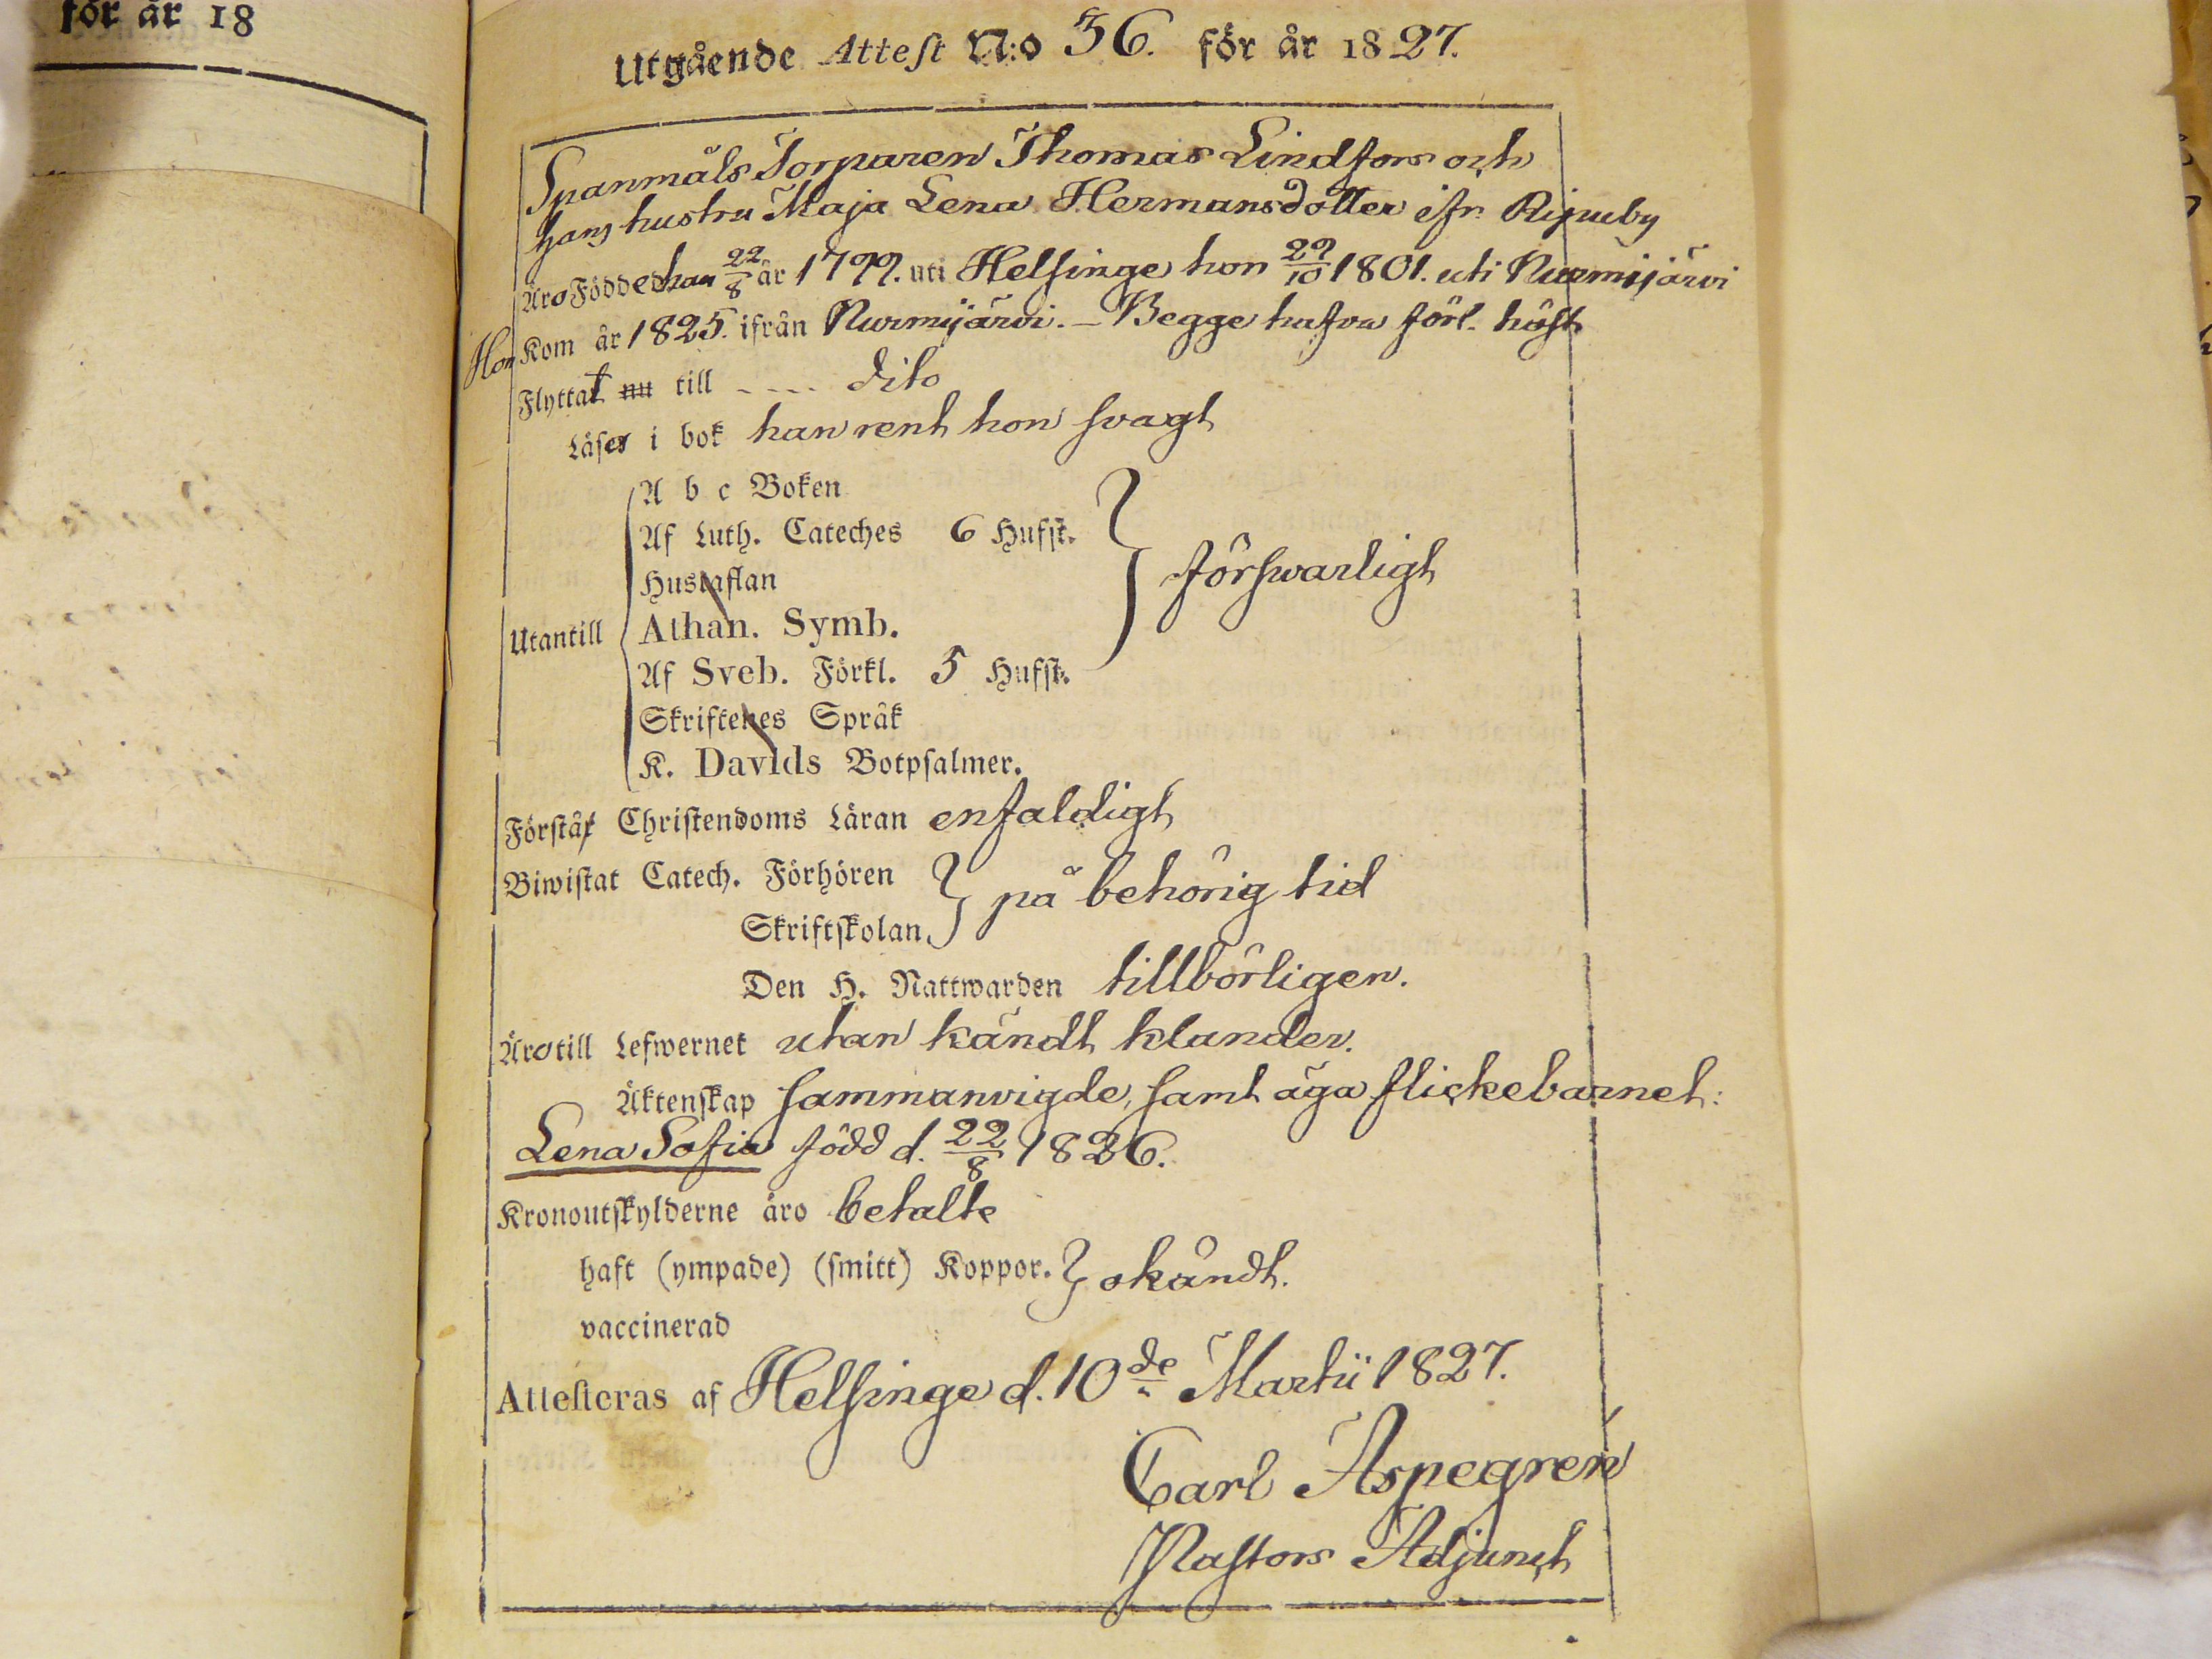 för år 18
Utgående Attest N:o 36. för år 1827.
Spanmåls Torparen Thomas Lindfors och
hans hustru Maja Lena Hermansdotter ifr.
Äro Födde han 22/8 år 1799. uti Helsinge hon 29/10 1801. uti Nurmijärvi
Hon Kom år 1825. ifrån Nurmijärvi. – Begge hafva förl. höst
Flyttat nu till - - - - dito
Läser i bok han rent hon svagt
A b c Boken
Af Luth. Cateches 6 Hufst.
Hustaflan
förswarligt
Utantill
Athan. Symb.
Af Sveb. Förkl. 5 Hufst.
Skriftenes Språk
K. Davids Botpsalmer.
Förstår Christendoms Läran enfaldigt
Biwistat Catech. Förhören
på behörig tid
Skriftskolan
Den H. Nattwarden tillbörligen.
Äro till Lefwernet utan kändt klander.
Äktenskap sammanvigde, samt äga flickebarnet:
Lena Sofia född d. 22/8 1826.
Kronoutskylderne äro betalte
haft (ympade) (smitt) Koppor. okändt.
vaccinerad
Attesteras af Helsinge d. 10de Martii 1827.
Carl Aspegren
Pastors Adjunct